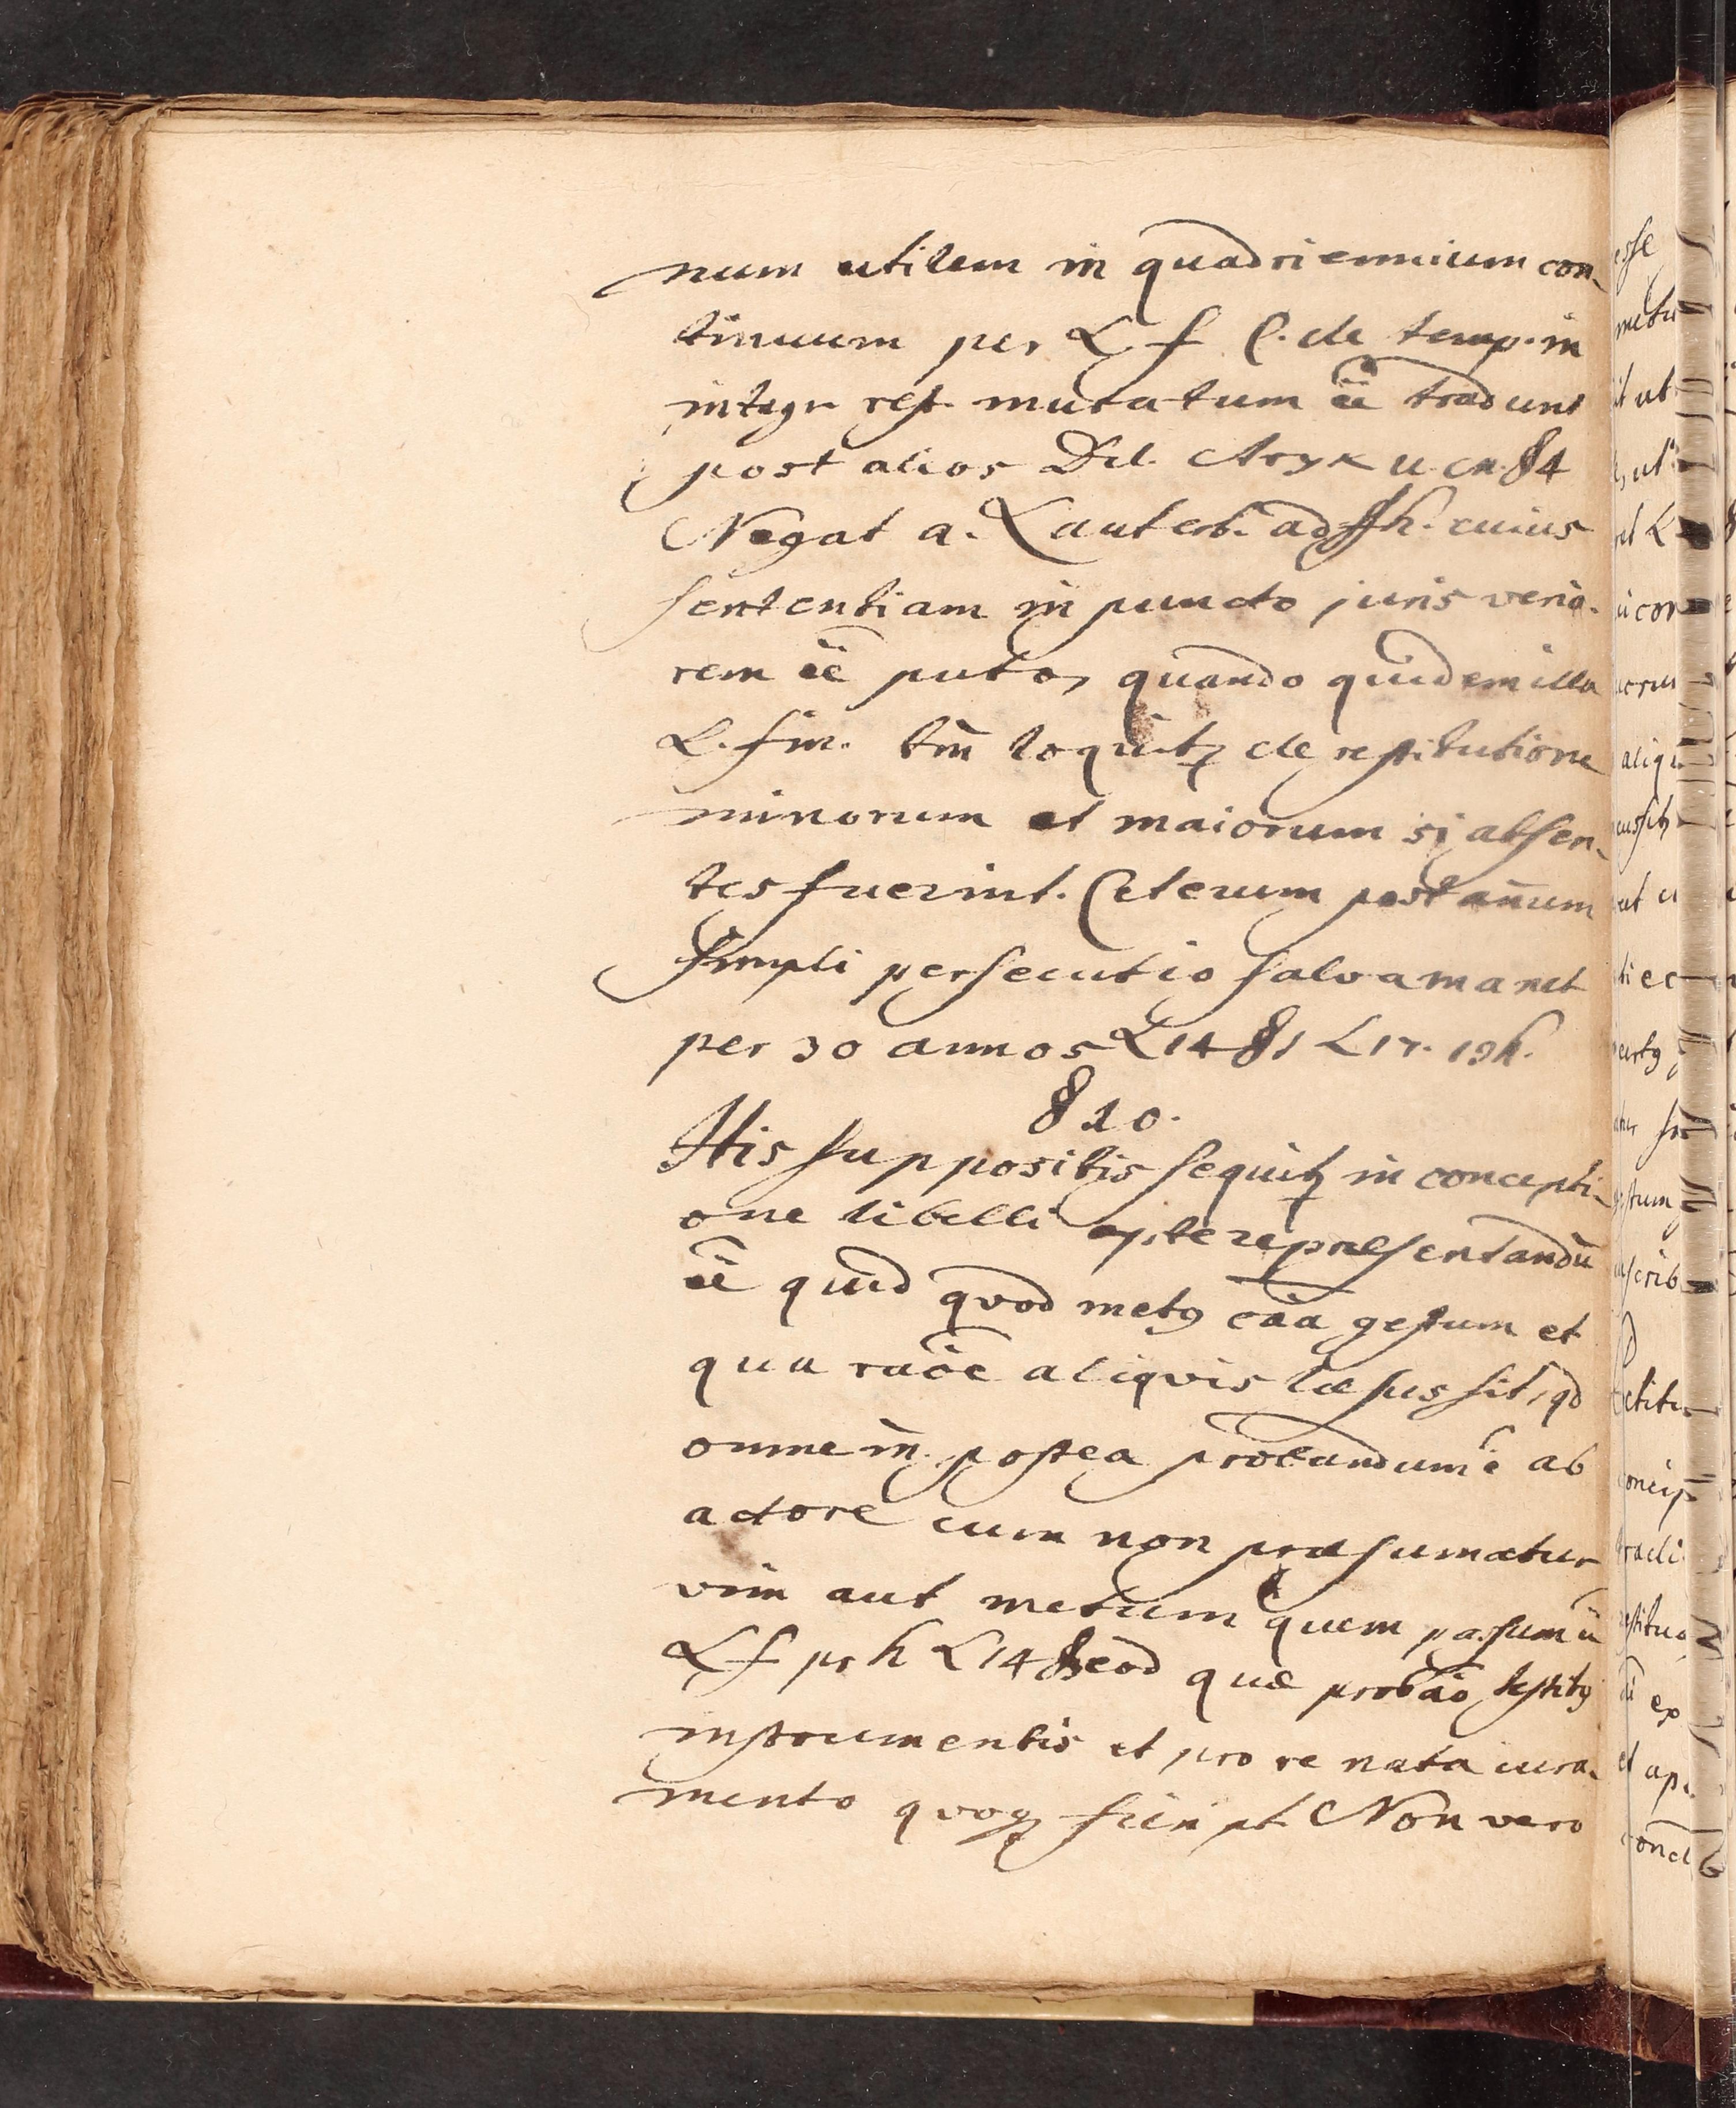 num utilem in quadriennium con-
tinuum per L f C. de temp. in
integr. rest. mutatum ēē tradunt
post alios Dd. c. n. 84
Negat a. Lauterb. ad ff h. cuius
sententiam in puncto juris verio-
rem ēē puto, quando quidem illa
L. fin. tm̄ loquitꝫ de restitutione
minorum et maiorum si absen-
tes fuerint. Ceterum post añum
simpli persecutio salva manet
per 30 annos L 14 § 1 L 17. 19 h.
§ 10.
His suppositis sequitꝫ in concepti-
one libelli apte repraesentandū
ēē quid quod metꝰ cāā gestum et
qua raõe aliqvis laesus sit, qd
omne in postea probandum ē ab
actore cum non praesumatur
vim aut metum quem passum
L f pr h L 14 § eod quae probāo testibꝰ
instrumentis et pro re nata iura-
mento qvoqꝫ fieri pt. Non vero
esse
metu
ut
aliqu